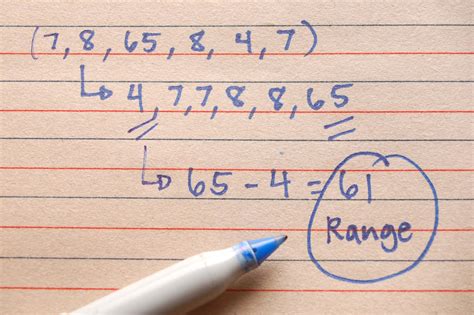 (7, 8, 65, 8, 4, 7)
4, 7, 7, 8, 8, 65
65 - 4 = 61
Range